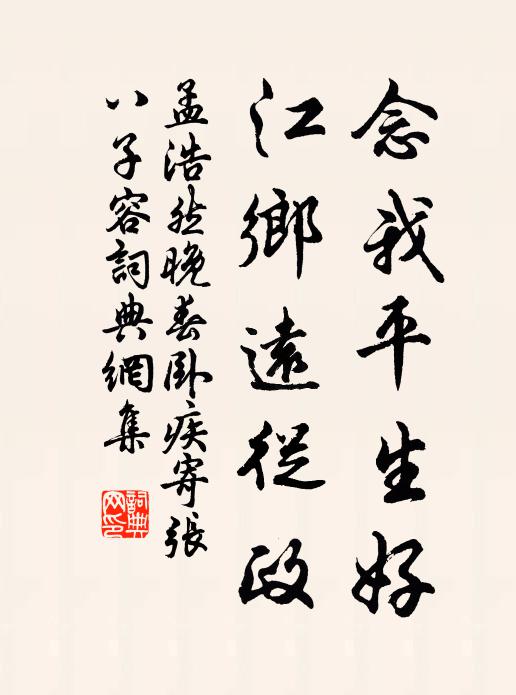 念我平生好
江鄉遠從政
孟浩然晚春卧疾寄張
八子容詞典網集
詞典
网印